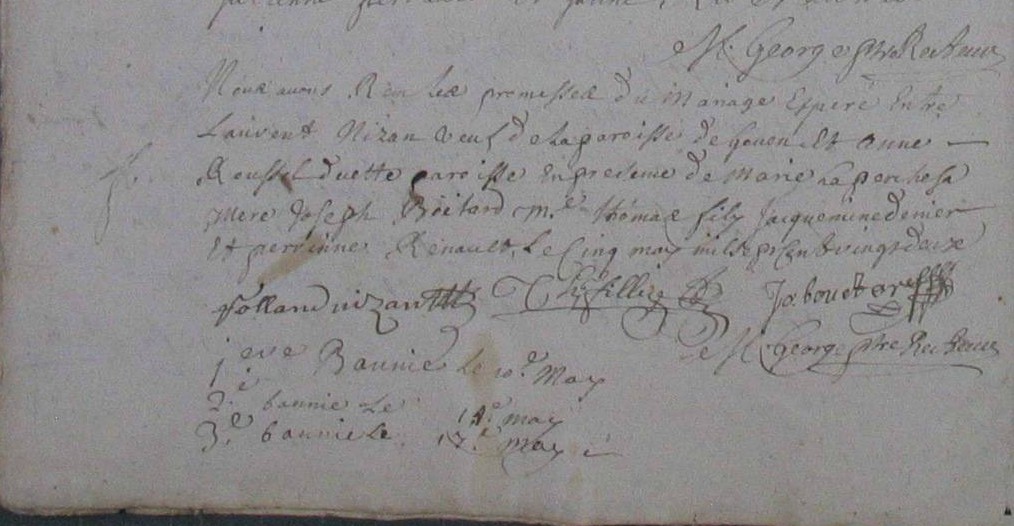 M. George ptre Recteur
Nous avons Receu les promesses du Mariage Esperé Entre
Laurent Nizan veuf de la paroisse de Gouen Et Anne
Roussel de cette paroisse En presence de Marie
mere Joseph Boitard Me thomas fily Jacquemine denier
Et perrinne Renault, Le Cinq may mil sept Cent vingt deux
rolland nizan Th filly Jabouetar
M. George ptre Recteur
1ere Bannie Le 10e May
2e bannie Le may
3e bannie Le 17e may